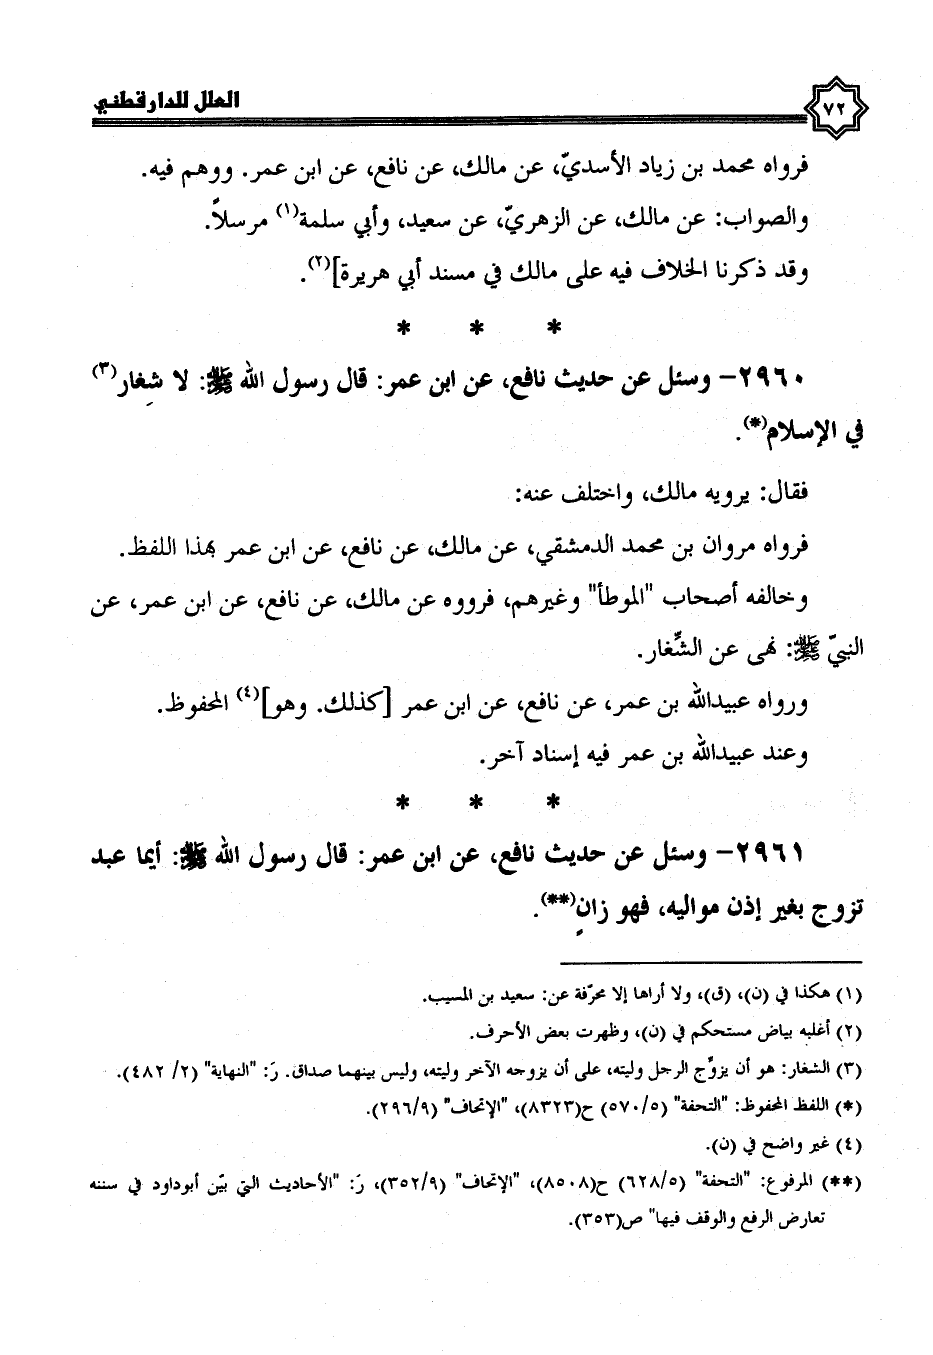 العلل للدارقطني
٧٢
فرواه محمد بن زياد الأسديّ، عن مالك، عن نافع، عن ابن عمر. ووهم فيه.
والصواب: عن مالك، عن الزهريّ، عن سعيد، وأبي سلمة(١) مرسلاً.
وقد ذكرنا الخلاف فيه على مالك في مسند أبي هريرة](٢).
* * *
٢٩٦٠- وسئل عن حديث نافع، عن ابن عمر: قال رسول الله ﷺ: لا شِغار(٣)
في الإسلام(*).
فقال: يرويه مالك، واختلف عنه:
فرواه مروان بن محمد الدمشقي، عن مالك، عن نافع، عن ابن عمر بهذا اللفظ.
وخالفه أصحاب "الموطأ" وغيرهم، فرووه عن مالك، عن نافع، عن ابن عمر، عن
النبيّ ﷺ: نهى عن الشِّغار.
ورواه عبيدالله بن عمر، عن نافع، عن ابن عمر [كذلك. وهو](٤) المحفوظ.
وعند عبيدالله بن عمر فيه إسناد آخر.
* * *
٢٩٦١- وسئل عن حديث نافع، عن ابن عمر: قال رسول الله ﷺ: أيما عبد
تزوج بغير إذن مواليه، فهو زانٍ(**).
(١) هكذا في (ن)، (ق)، ولا أراها إلا محرّفة عن: سعيد بن المسيب.
(٢) أغلبه بياض مستحكم في (ن)، وظهرت بعض الأحرف.
(٣) الشغار: هو أن يزوِّج الرجل وليته، على أن يزوجه الآخر وليته، وليس بينهما صداق. رَ: "النهاية" (٢/ ٤٨٢).
(*) اللفظ المحفوظ: "التحفة" (٥/ ٥٧٠) ح(٨٣٢٣)، "الإتحاف" (٩/ ٢٩٦).
(٤) غير واضح في (ن).
(**) المرفوع: "التحفة" (٥/ ٦٢٨) ح(٨٥٠٨)، "الإتحاف" (٩/ ٣٥٢)، رَ: "الأحاديث التي بيّن أبوداود في سننه
تعارض الرفع والوقف فيها" ص(٣٥٣).